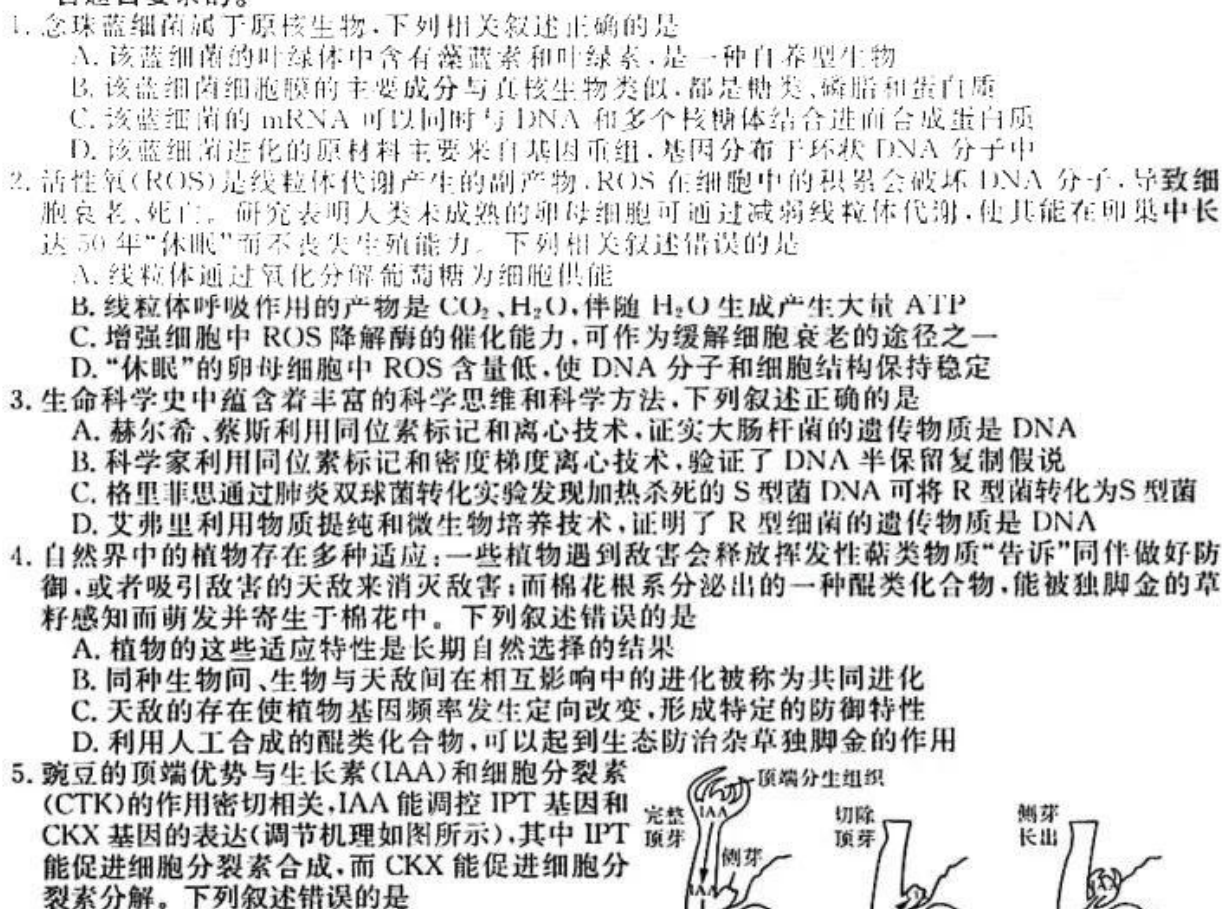 合题目要求的。
1. 念珠蓝细菌属于原核生物,下列相关叙述正确的是
A. 该蓝细菌的叶绿体中含有藻蓝素和叶绿素,是一种自养型生物
B. 该蓝细菌细胞膜的主要成分与真核生物类似,都是糖类、磷脂和蛋白质
C. 该蓝细菌的 mRNA 可以同时与 DNA 和多个核糖体结合进而合成蛋白质
D. 该蓝细菌进化的原材料主要来自基因重组,基因分布于环状 DNA 分子中
2. 活性氧(ROS)是线粒体代谢产生的副产物,ROS 在细胞中的积累会破坏 DNA 分子,导致细
胞衰老、死亡。研究表明人类未成熟的卵母细胞可通过减弱线粒体代谢,使其能在卵巢中长
达 50 年“休眠”而不丧失生殖能力。下列相关叙述错误的是
A. 线粒体通过氧化分解葡萄糖为细胞供能
B. 线粒体呼吸作用的产物是 CO₂、H₂O,伴随 H₂O 生成产生大量 ATP
C. 增强细胞中 ROS 降解酶的催化能力,可作为缓解细胞衰老的途径之一
D. “休眠”的卵母细胞中 ROS 含量低,使 DNA 分子和细胞结构保持稳定
3. 生命科学史中蕴含着丰富的科学思维和科学方法,下列叙述正确的是
A. 赫尔希、蔡斯利用同位素标记和离心技术,证实大肠杆菌的遗传物质是 DNA
B. 科学家利用同位素标记和密度梯度离心技术,验证了 DNA 半保留复制假说
C. 格里菲思通过肺炎双球菌转化实验发现加热杀死的 S 型菌 DNA 可将 R 型菌转化为S 型菌
D. 艾弗里利用物质提纯和微生物培养技术,证明了 R 型细菌的遗传物质是 DNA
4. 自然界中的植物存在多种适应:一些植物遇到敌害会释放挥发性萜类物质“告诉”同伴做好防
御,或者吸引敌害的天敌来消灭敌害;而棉花根系分泌出的一种醌类化合物,能被独脚金的草
籽感知而萌发并寄生于棉花中。下列叙述错误的是
A. 植物的这些适应特性是长期自然选择的结果
B. 同种生物间、生物与天敌间在相互影响中的进化被称为共同进化
C. 天敌的存在使植物基因频率发生定向改变,形成特定的防御特性
D. 利用人工合成的醌类化合物,可以起到生态防治杂草独脚金的作用
5. 豌豆的顶端优势与生长素(IAA)和细胞分裂素
(CTK)的作用密切相关,IAA 能调控 IPT 基因和
CKX 基因的表达(调节机理如图所示),其中 IPT
能促进细胞分裂素合成,而 CKX 能促进细胞分
裂素分解。下列叙述错误的是
顶端分生组织
完整
顶芽
IAA
侧芽
IAA
切除
顶芽
侧芽
长出